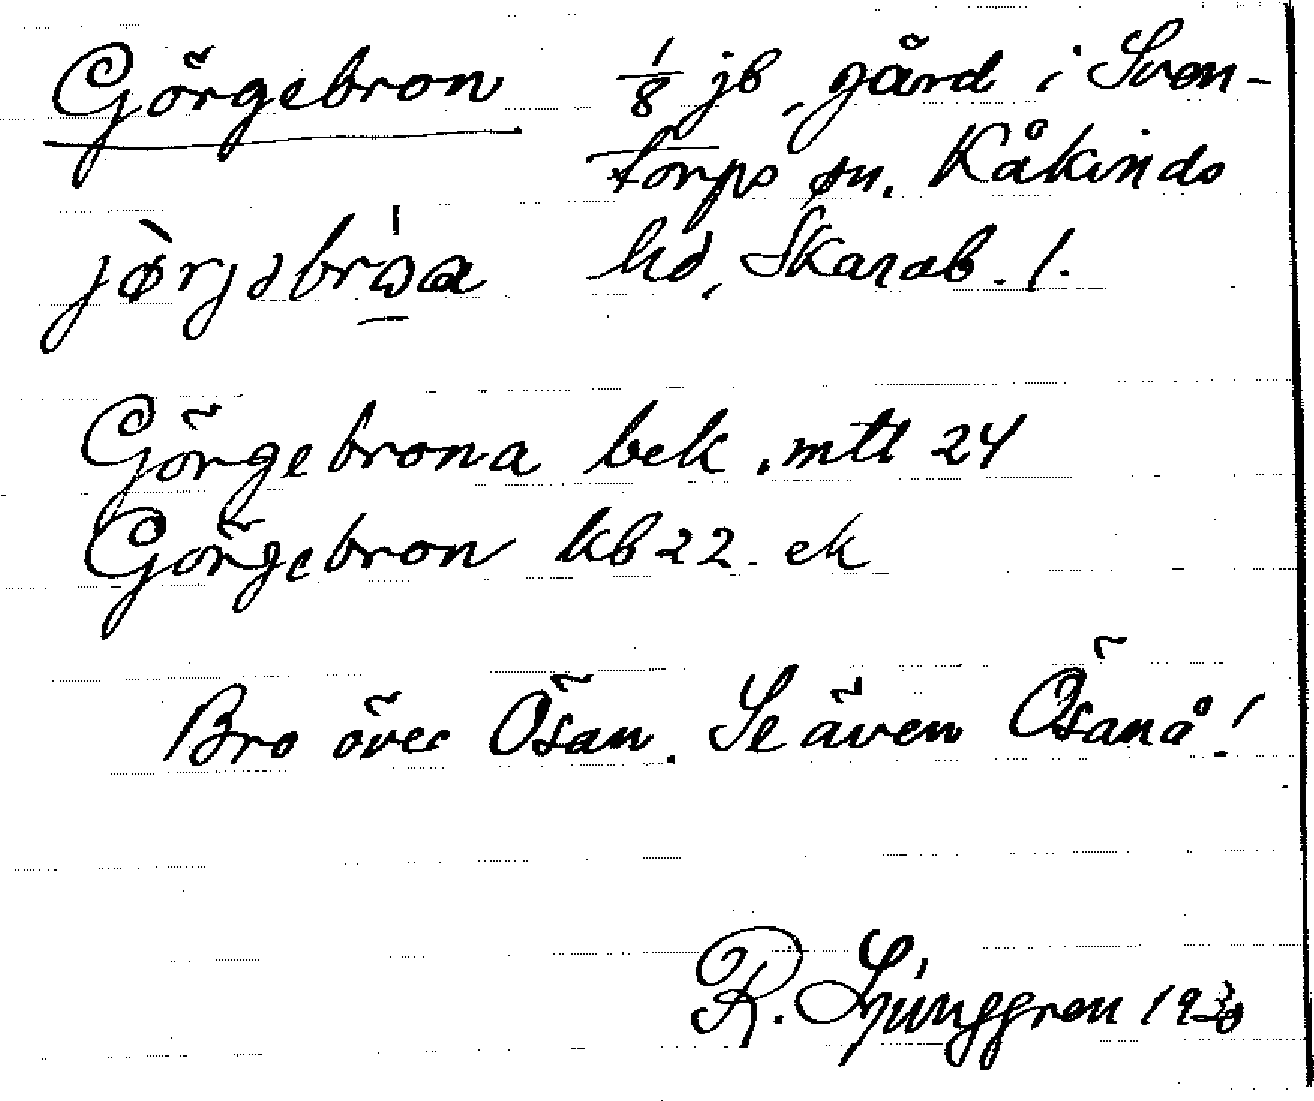 Görgebron 1/8 jb, gård i Sven-
torps sn. Kåkinds
hd, Skarab. l.
Görgebrona bek. mtl 24
Görgebron kb 22. ek
Bro över Ösan. Se även Ösanå!
R. Ljunggren 1930